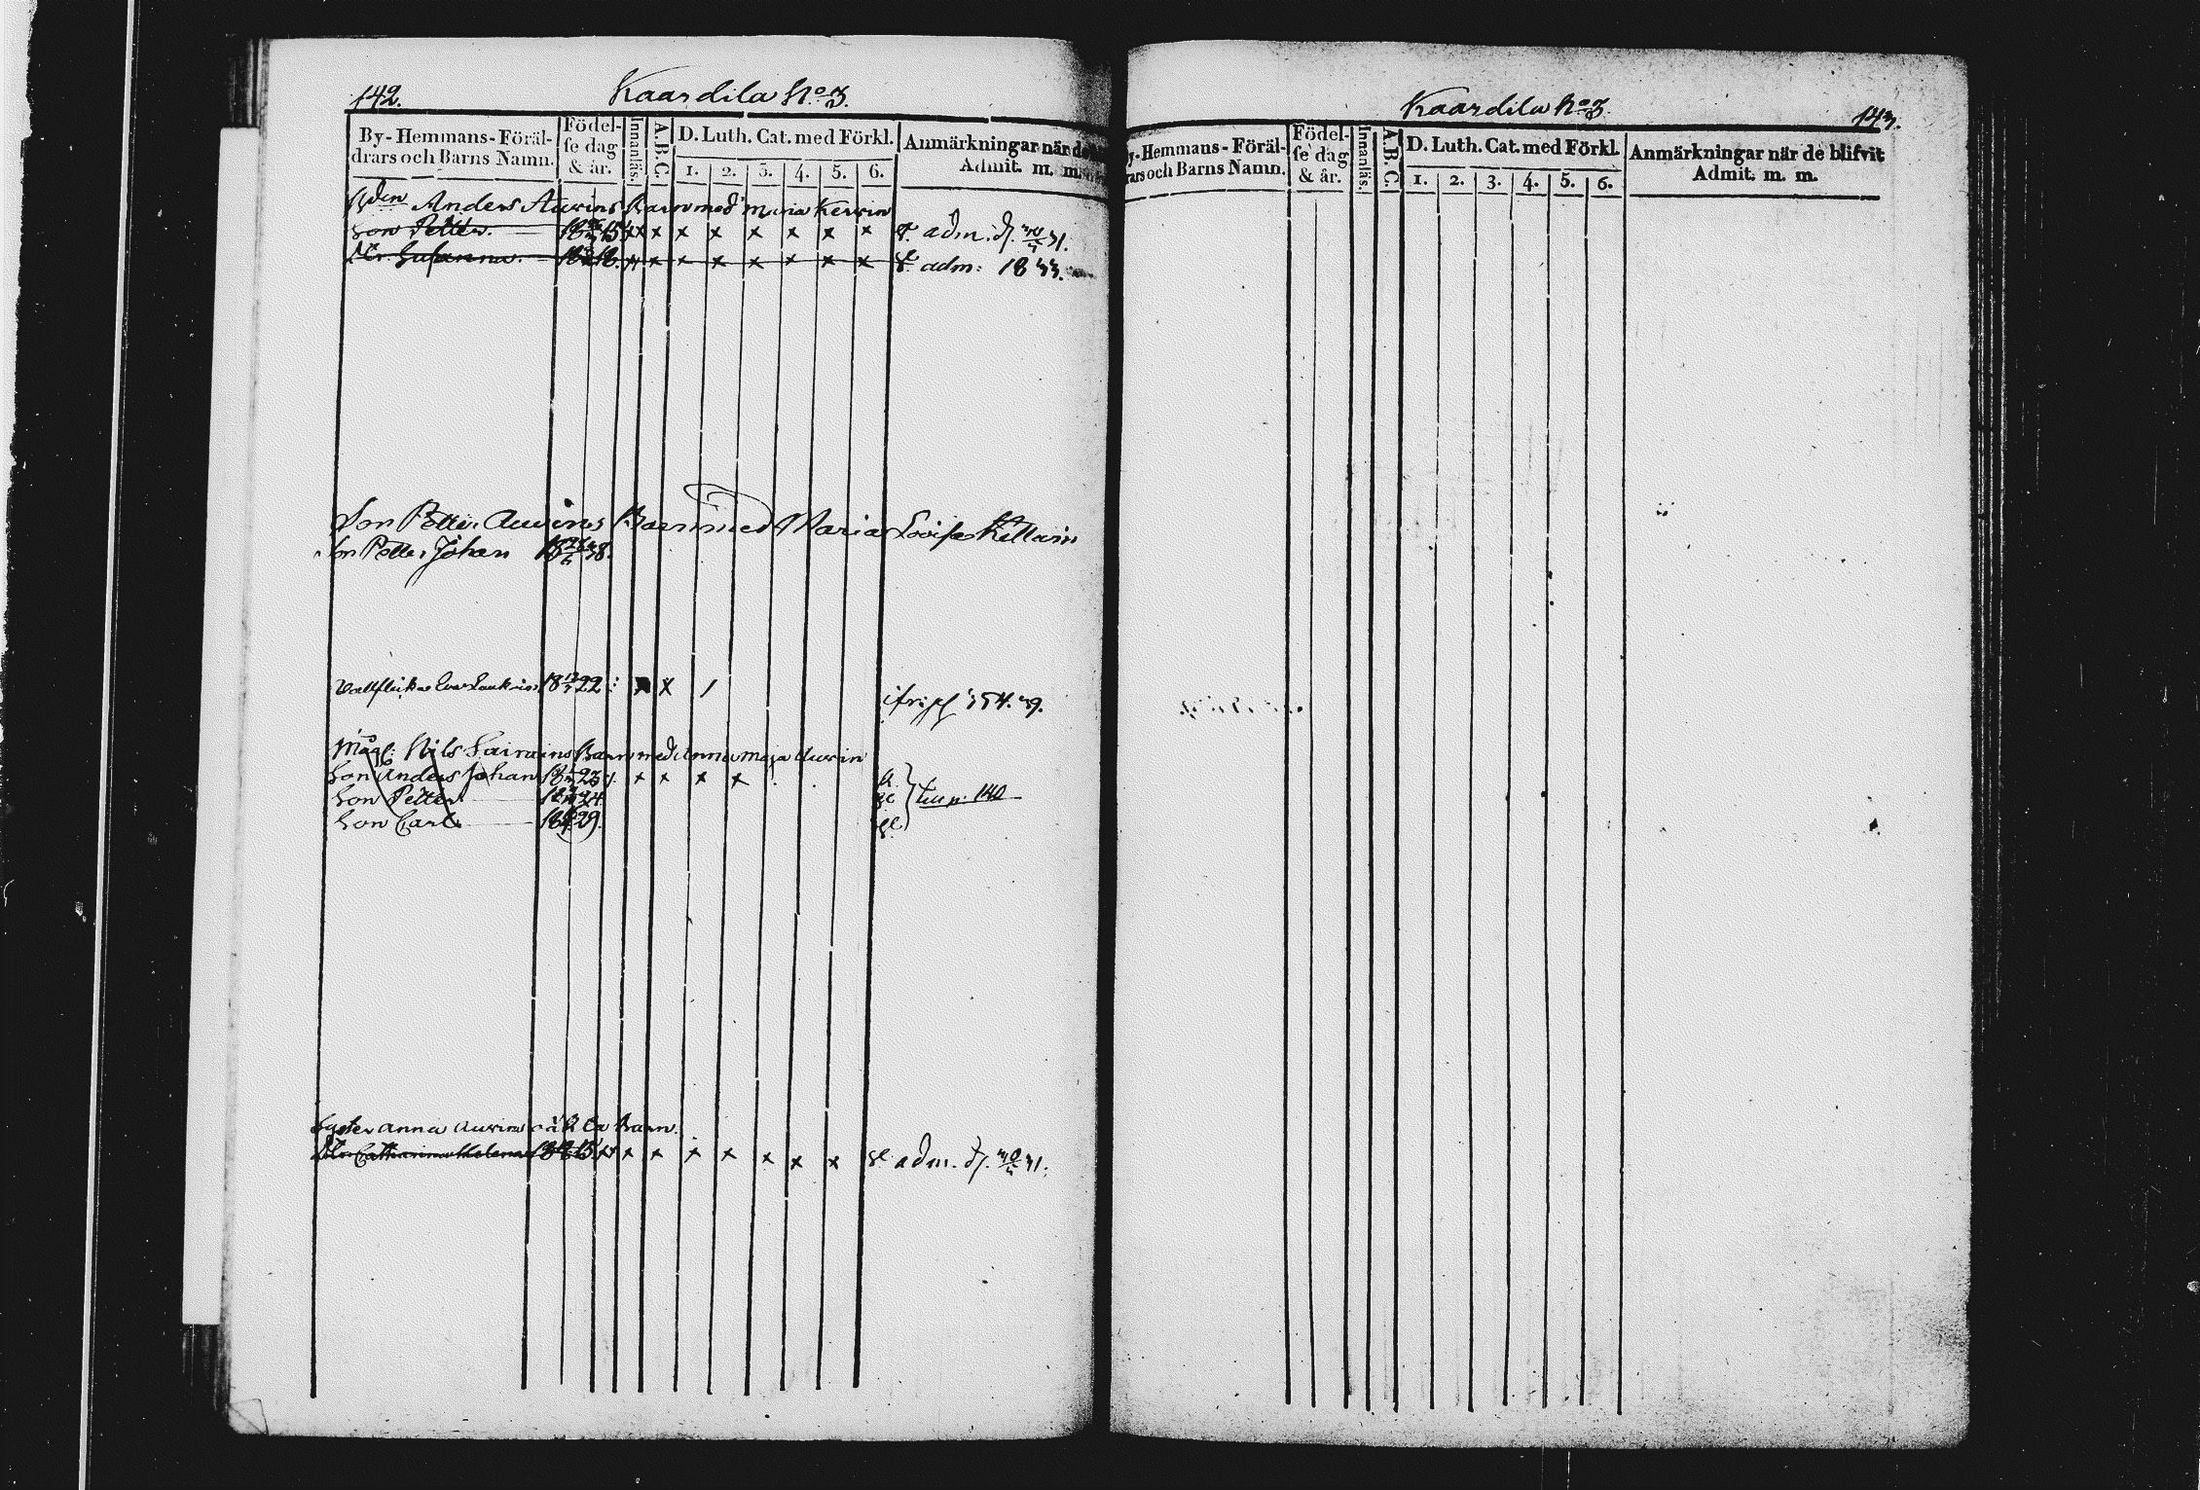 142.
Kaardila No 3.
By-Hemmans-Föräl-
drars och Barns Namn.
Födel-
se dag
& år.
Innanläs.
A.B.C.
D. Luth. Cat. med Förkl.
1. 2. 3. 4. 5. 6.
Anmärkningar när de
Admit. m. m.
Bden Anders Auvins Barn med Maria Kervin
Son Petter. x x x x x x x adm. d. 31.
Dr Susanna. x x x x x x adm: 1833.
Son Petter Auvins Barn med Maria Lovisa
Son Petter Johan 38.
1822 x /
354. 39.
Måg: Nils Barn med Anna Maja Auvin
Son Anders Johan 1823 x x x x
Son Petter. 1824
Son Carl 1829. p. 140
Syster Anna Auvins oäkta Barn.
Dr Catharina Helena x x x x x x x x adm. d. 31.
Kaardila No 3.
143.
By-Hemmans-Föräl-
drars och Barns Namn.
Födel-
se dag
& år.
Innanläs.
A.B.C.
D. Luth. Cat. med Förkl.
1. 2. 3. 4. 5. 6.
Anmärkningar när de blifvit
Admit. m. m.